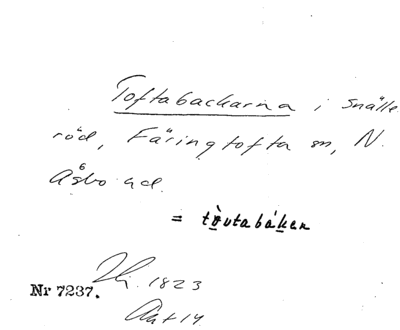 Toftabackarna i Snälle
röd, Färingtofta sn, N.
Åsbo hd.
= tòvtabákен
1823
Nr 7237.